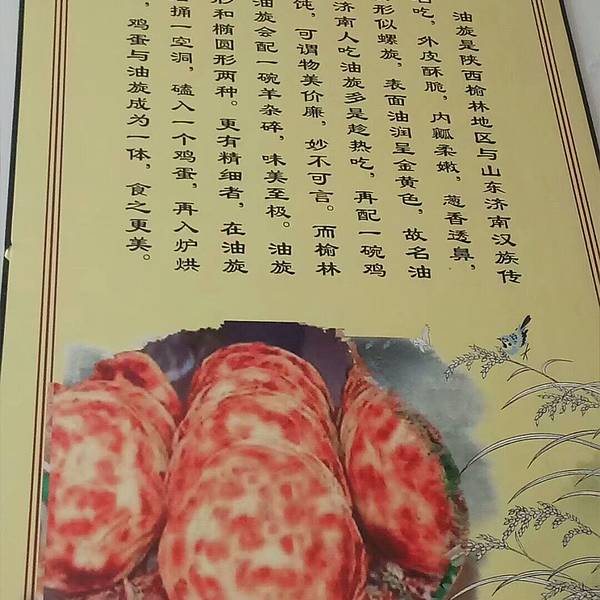 油旋是陕西榆林地区与山东济南汉族传
口吃，外皮酥脆，内瓤柔嫩，葱香透鼻，
形似螺旋，表面油润呈金黄色，故名油
济南人吃油旋多是趁热吃，再配一碗鸡
饨，可谓物美价廉，妙不可言。而榆林
油旋会配一碗羊杂碎，味美至极。油旋
形和椭圆形两种。更有精细者，在油旋
捅一空洞，磕入一个鸡蛋，再入炉烘
，鸡蛋与油旋成为一体，食之更美。